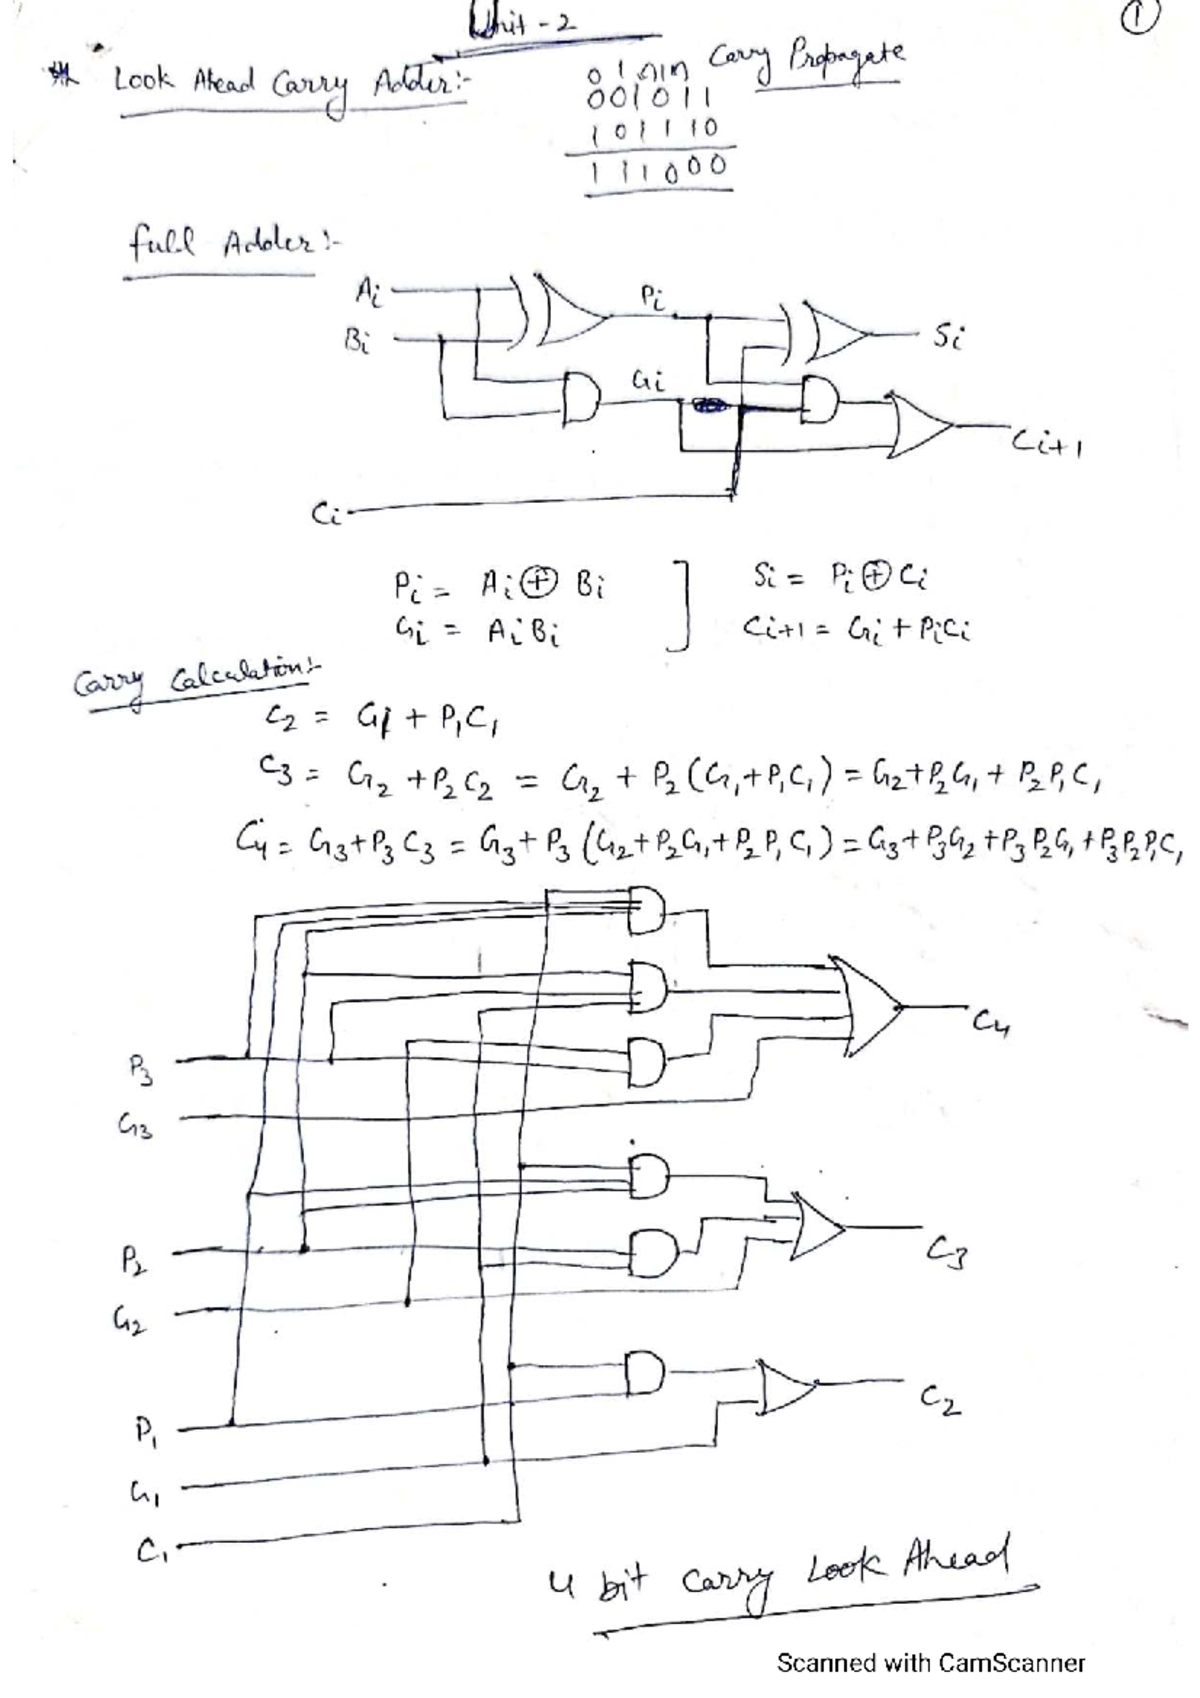 Unit - 2
1
* Look Ahead Carry Adder:-
Carry Propagate
001011
101110
111000
full Adder:-
Ai
Bi
Pi
Gi
Si
Ci+1
Ci
Pi = Ai ⊕ Bi ] Si = Pi ⊕ Ci
Gi = AiBi Ci+1 = Gi + PiCi
Carry Calculation:-
C2 = G1 + P1C1
C3 = G2 + P2C2 = G2 + P2(G1+P1C1) = G2+P2G1 + P2P1C1
C4 = G3+P3C3 = G3+P3(G2+P2G1+P2P1C1) = G3+P3G2+P3P2G1+P3P2P1C1
C4
P3
G3
P2
C3
G2
C2
P1
G1
C1
4 bit Carry Look Ahead
Scanned with CamScanner